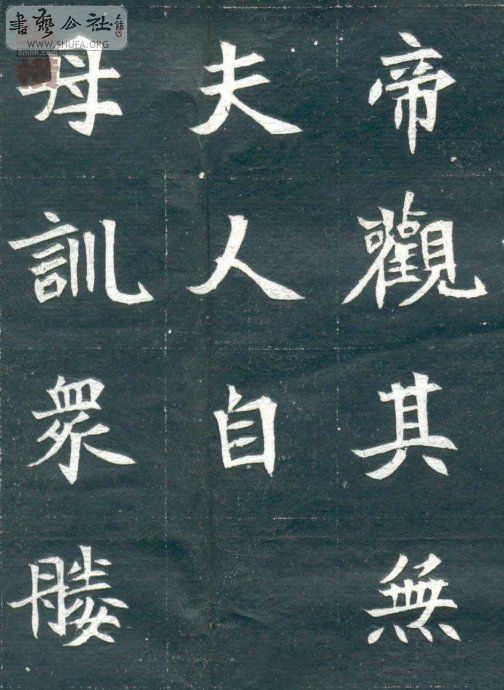 書藝公社
WWW.SHUFA.ORG
帝觀其無
夫人自
母訓眾媵